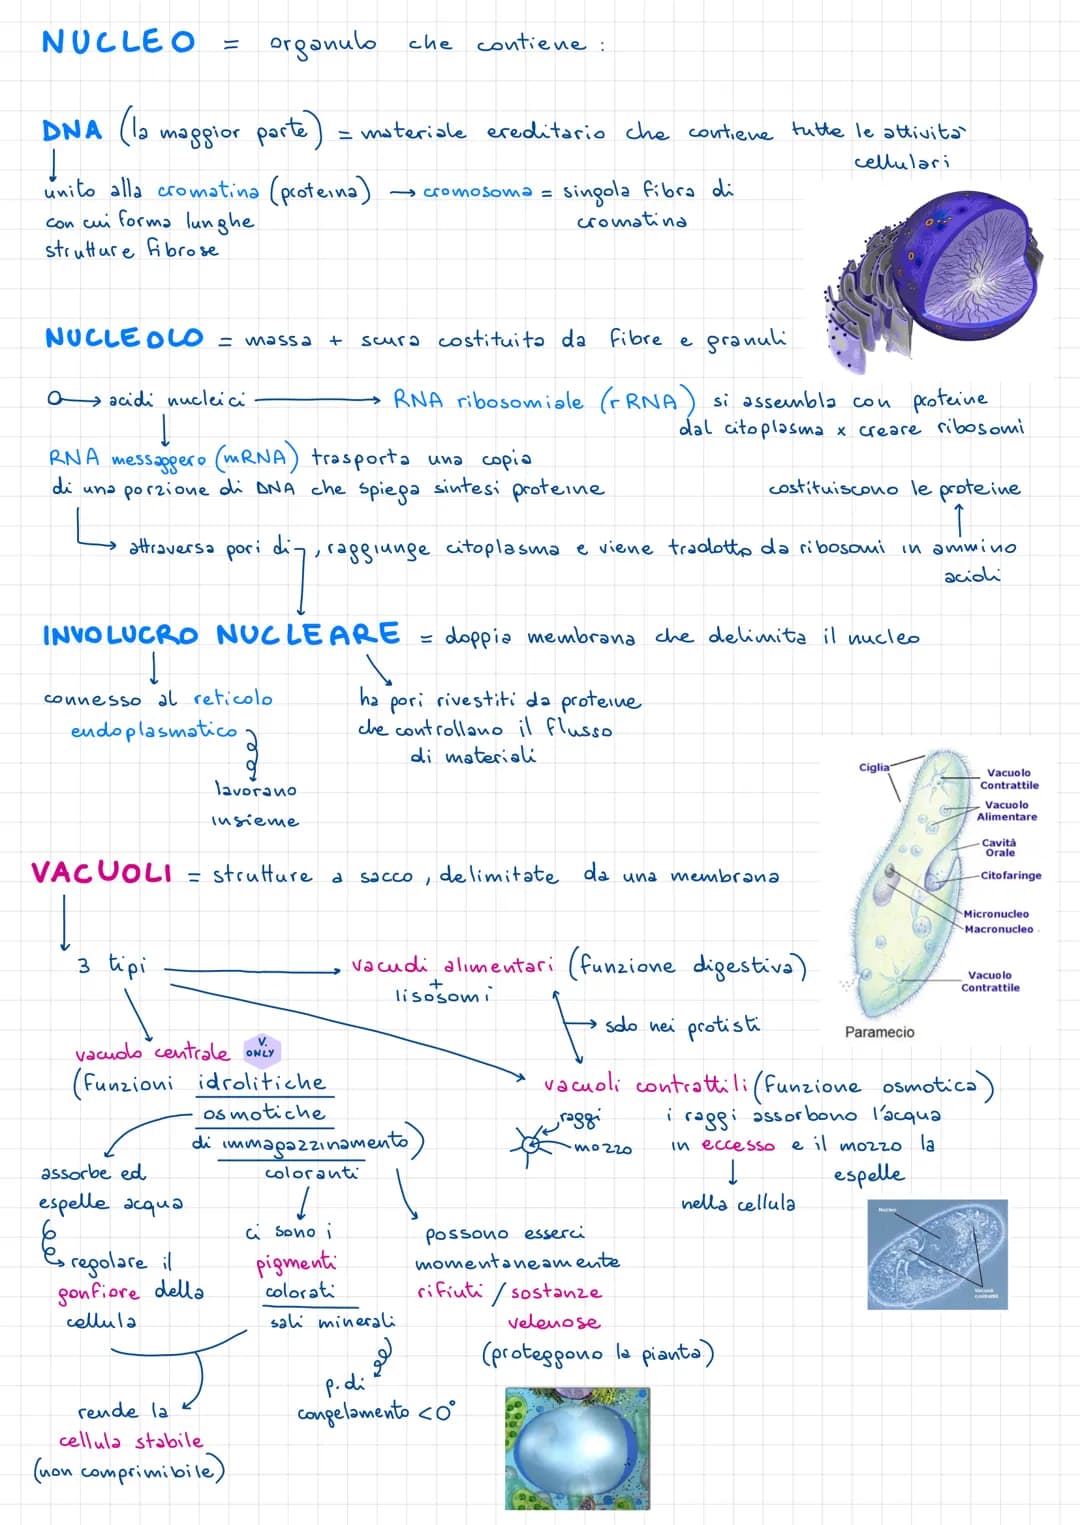 NUCLEO = organulo che contiene :
DNA (la maggior parte) = materiale ereditario che contiene tutte le attività
cellulari
unito alla cromatina (proteina) → cromosoma = singola fibra di
cromatina
con cui forma lunghe
strutture fibrose
NUCLEOLO = massa + scura costituita da fibre e granuli
→ acidi nucleici → RNA ribosomiale (rRNA) si assembla con proteine
dal citoplasma x creare ribosomi
RNA messaggero (mRNA) trasporta una copia
di una porzione di DNA che spiega sintesi proteine
costituiscono le proteine
→ attraversa pori di , raggiunge citoplasma e viene tradotto da ribosomi in ammino
acidi
INVOLUCRO NUCLEARE = doppia membrana che delimita il nucleo
connesso al reticolo
endoplasmatico
lavorano
insieme
ha pori rivestiti da proteine
che controllano il flusso
di materiali
Ciglia
Vacuolo
Contrattile
Vacuolo
Alimentare
Cavità
Orale
Citofaringe
Micronucleo
Macronucleo
Vacuolo
Contrattile
Paramecio
VACUOLI = strutture a sacco , delimitate da una membrana
3 tipi
vacuoli alimentari (funzione digestiva)
+
lisosomi
→ solo nei protisti
vacuolo centrale V. ONLY
(funzioni idrolitiche
osmotiche
di immagazzinamento)
coloranti
vacuoli contrattili (funzione osmotica)
raggi
mozzo
i raggi assorbono l'acqua
in eccesso e il mozzo la
espelle
nella cellula
assorbe ed
espelle acqua
regolare il
gonfiore della
cellula
rende la
cellula stabile
(non comprimibile)
ci sono i
pigmenti
colorati
sali minerali
p. di
congelamento <0°
possono esserci
momentaneamente
rifiuti / sostanze
velenose
(proteggono la pianta)